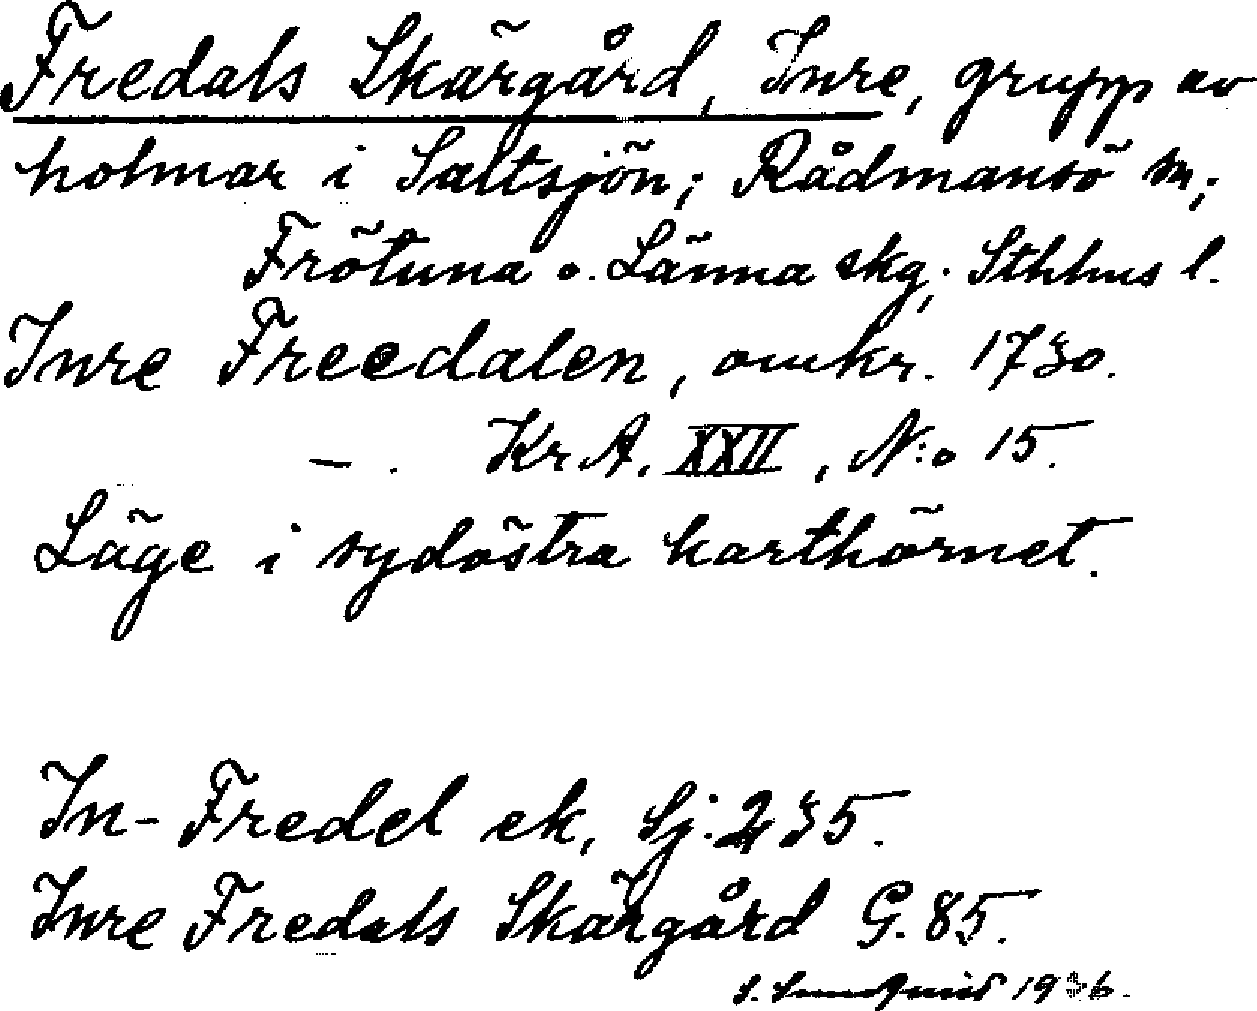 Fredals Skärgård, Inre, grupp av
holmar i Saltsjön; Rådmansö sn;
Frötuna o. Länna skg; Sthlms l.
Inre Freedalen, omkr. 1730.
— . Kr A. XXII, N:o 15.
Läge i sydöstra karthörnet.
In-Fredel ek, Sj: 235.
Inre Fredals Skärgård G. 85.
S. Sundquist 1936.